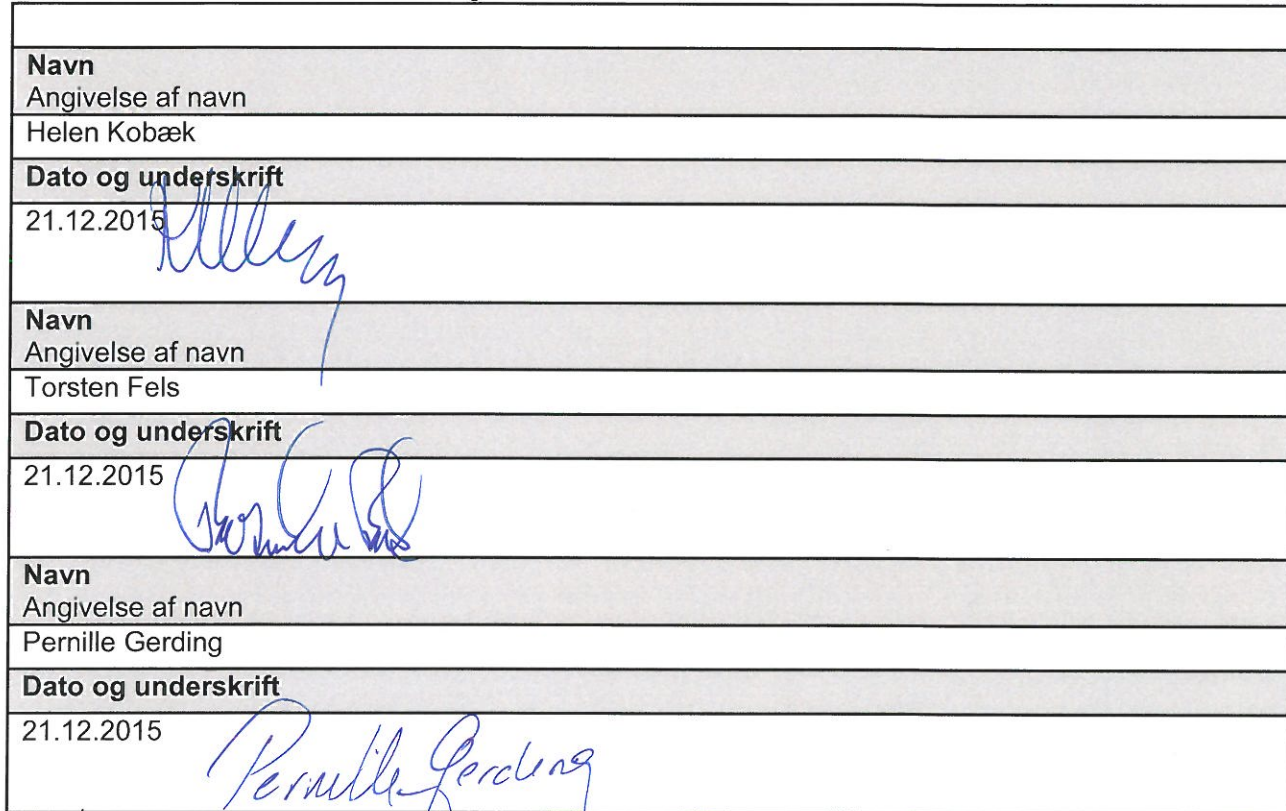 Navn
Angivelse af navn
Helen Kobæk
Dato og underskrift
21.12.2015
Navn
Angivelse af navn
Torsten Fels
Dato og underskrift
21.12.2015
Navn
Angivelse af navn
Pernille Gerding
Dato og underskrift
21.12.2015 Pernille Gerding